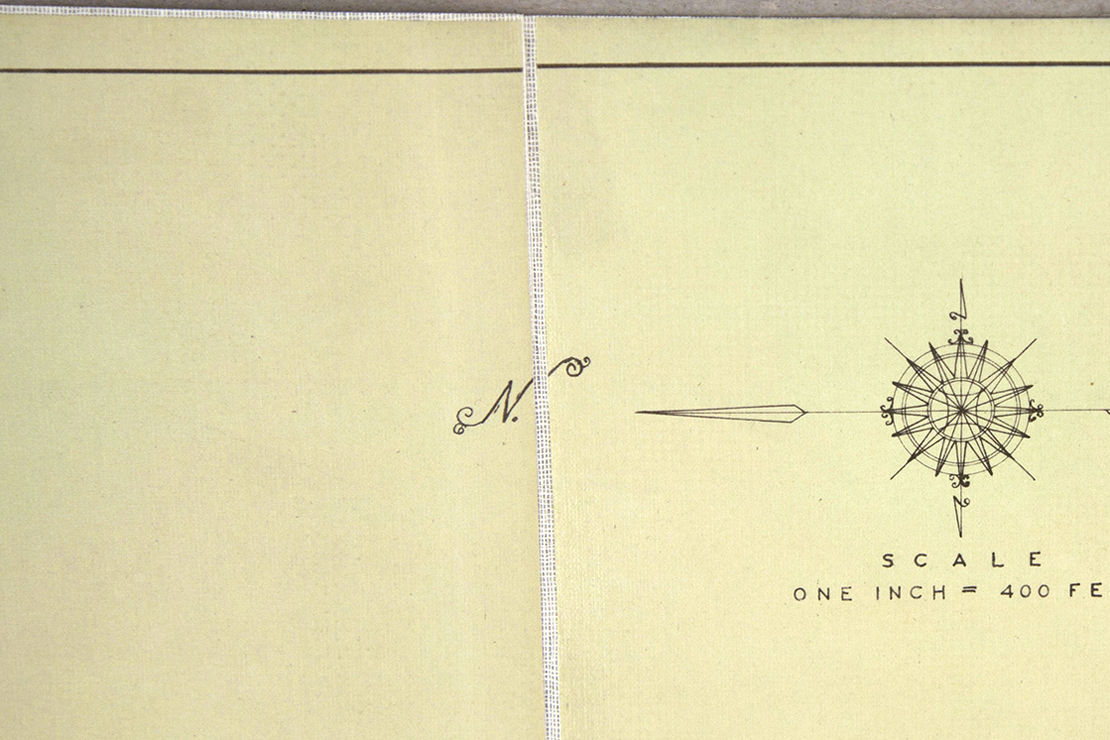 N.
SCALE
ONE INCH = 400 FE